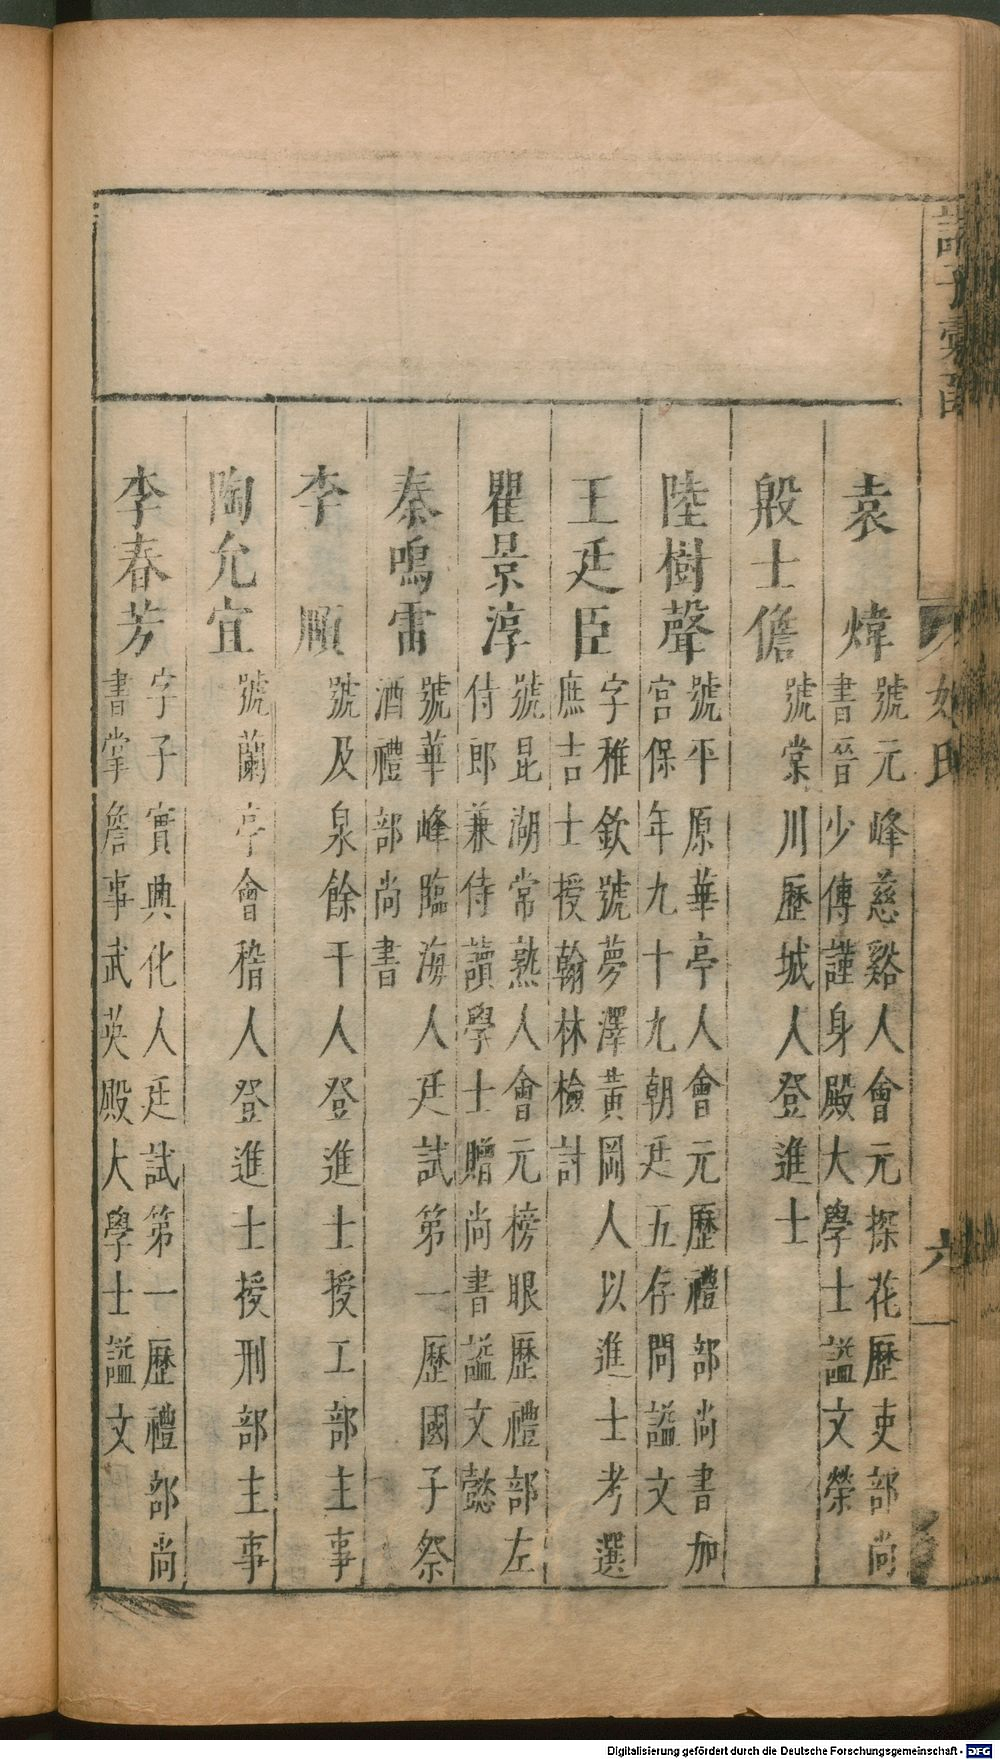 諸子彙函
姓氏
六
袁煒 號元峰慈谿人會元探花歷吏部尚
書晉少傅謹身殿大學士謚文榮
殷士儋 號棠川歷城人登進士
陸樹聲 號平原華亭人會元歷禮部尚書加
宮保年九十九朝廷五存問謚文
王廷臣 字稚欽號夢澤黃岡人以進士考選
庶吉士授翰林檢討
瞿景淳 號昆湖常熟人會元榜眼歷禮部左
侍郎兼侍讀學士贈尚書謚文懿
秦鳴雷 號華峰臨海人廷試第一歷國子祭
酒禮部尚書
李順 號及泉餘干人登進士授工部主事
陶允宜 號蘭亭會稽人登進士授刑部主事
李春芳 字子實興化人廷試第一歷禮部尚
書掌詹事武英殿大學士謚文
Digitalisierung gefördert durch die Deutsche Forschungsgemeinschaft - DFG